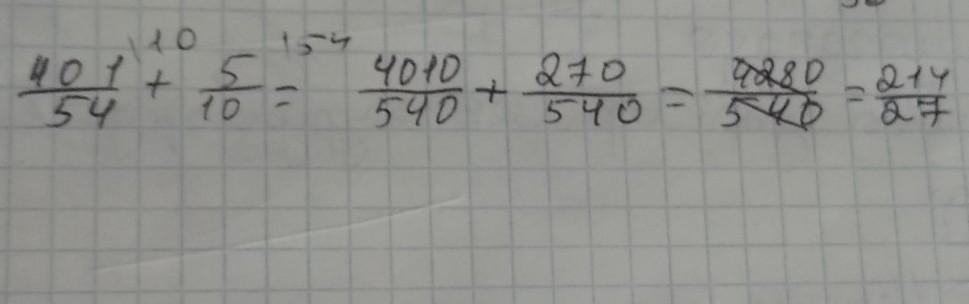 401/54 \10 + 5/10 \54 = 4010/540 + 270/540 = 4280/540 = 214/27